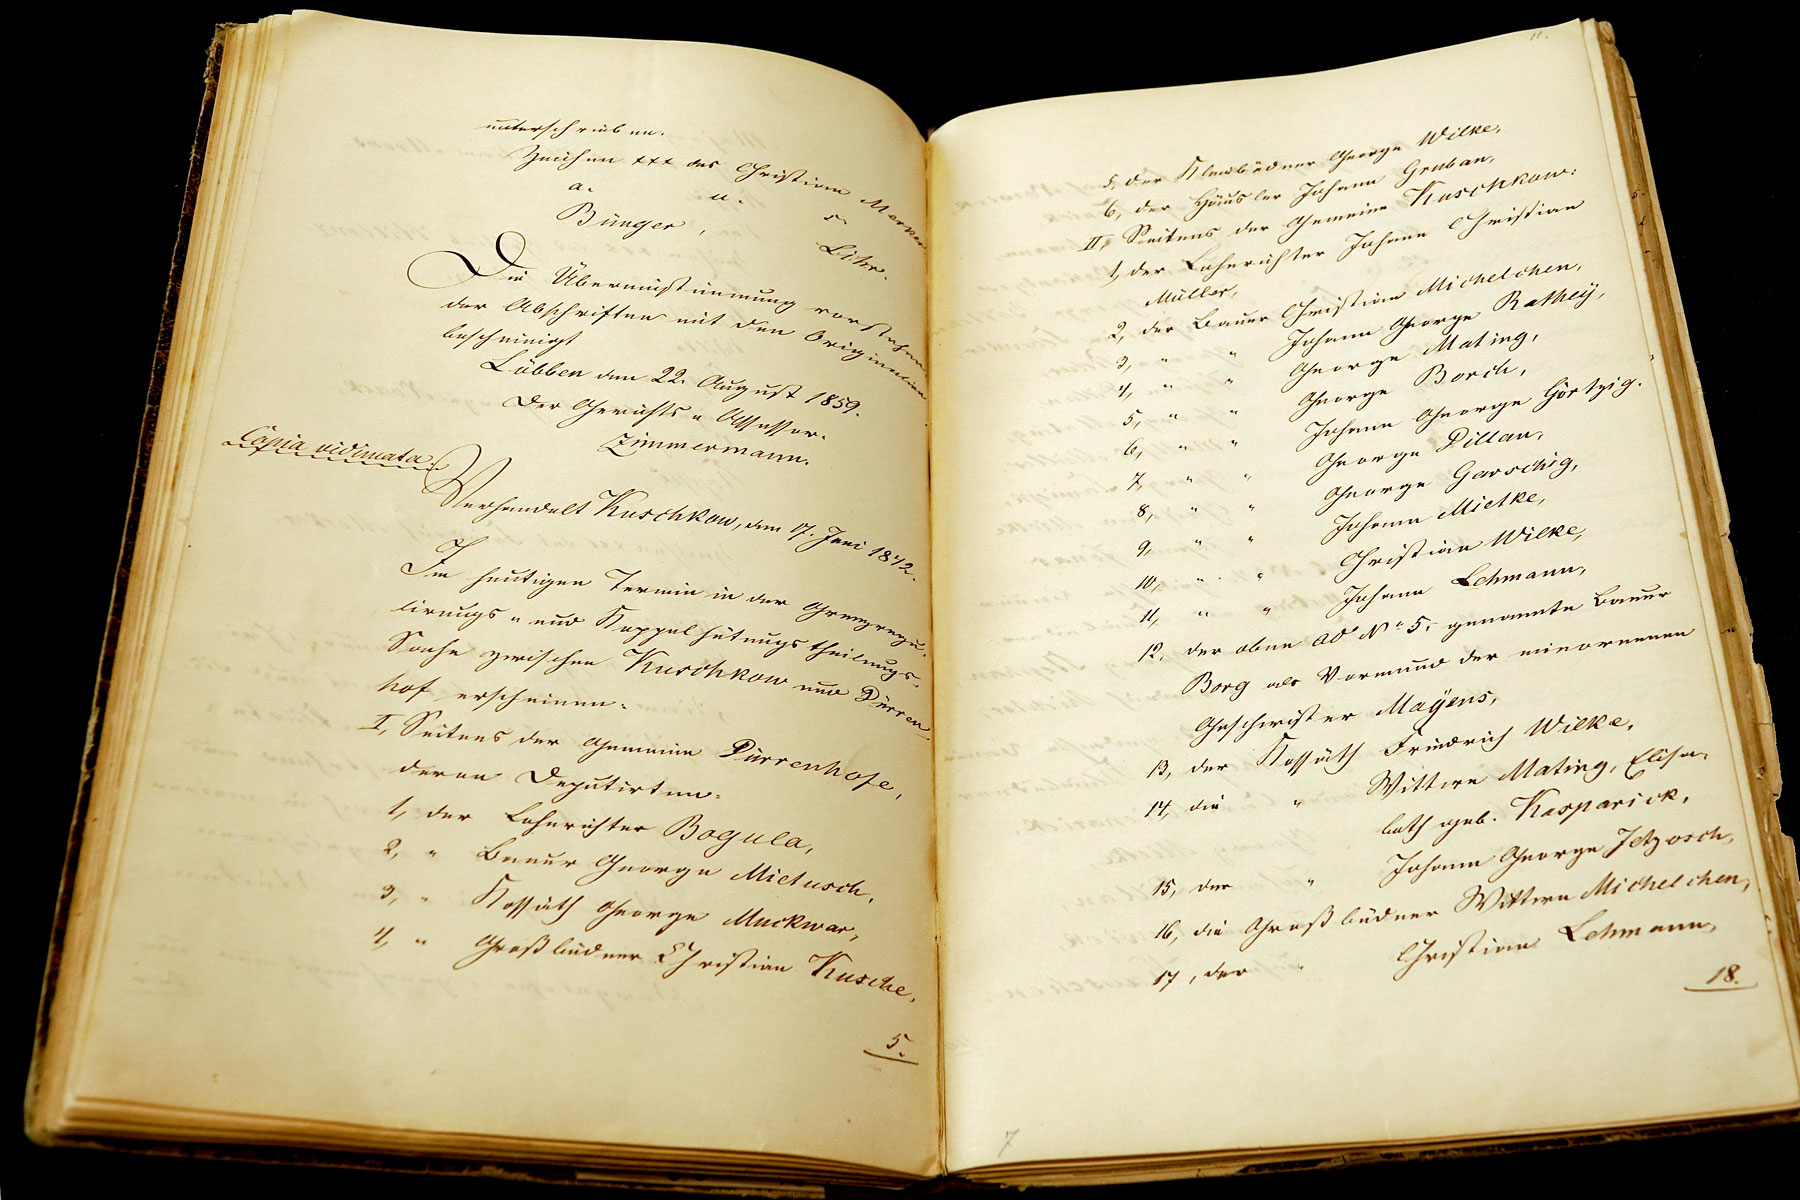 unterschrieben.
Zeichen +++ des Christian Marker
a. u. s.
Bünger, Lihr.
Die Übereinstimmung vorstehen
der Abschriften mit den Originalien
bescheinigt
Lübben den 22. August 1859.
Der Gerichts Assessor.
Zimmermann.
Copia vidimata.
Verhandelt Kuschkow, den 17. Juni 1842.
Im heutigen Termin in der Grenzregu-
lirungs- und Koppelhütungstheilungs-
Sache zwischen Kuschkow und Dürren-
hof erscheinen:
I, Seitens der Gemeine Dürrenhofe,
deren Deputirten:
1, der Lehnrichter Bogula,
2, " Bauer George Mietusch,
3, " Kossäth George Muckwar,
4, " Großbüdner Christian Kusche,
5.
11.
5, der Kleinbüdner George Wilke,
6, der Häusler Johann Gruban,
II, Seitens der Gemeine Kuschkow:
1, der Lehnrichter Johann Christian
Müller,
2, der Bauer Christian Michelchen,
3, " " Johann George Rathey,
4, " " George Mating,
5, " " George Borch,
6, " " Johann George Görtzig.
7, " " George Dillan,
8, " " George Garschig,
9, " " Johann Mietke,
10, " " Christian Wilke,
11, " " Johann Lehmann,
12, der oben ad No 5. genannte Bauer
Borg als Vormund der minorennen
Geschwister Mayens,
13, der Kossäth Friedrich Wilke,
14, die " Wittwe Mating, Elisa-
beth geb. Kasparick,
15, der " Johann George Jetzosch,
16, die Großbüdner Wittwe Michelchen,
17, der " Christian Lehmann,
18.
7